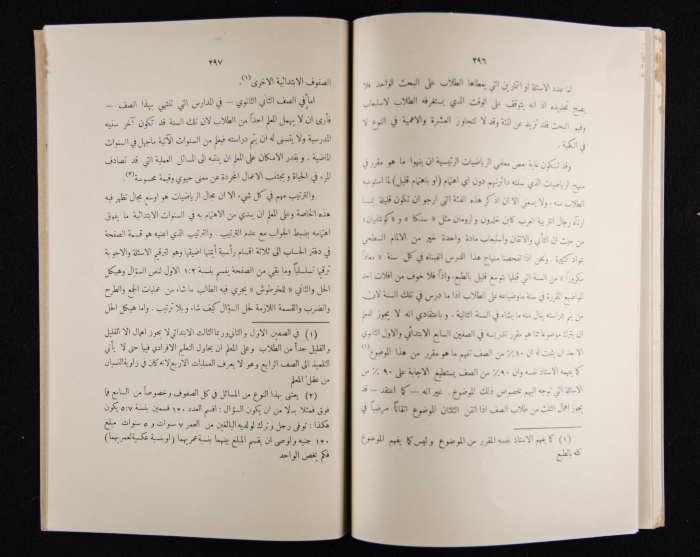 ٢٩٦
اما عدد الاسئلة او التمارين التي يعطاها الطلاب على البحث الواحد فلا
يصح تحديده اذ انه يتوقف على الوقت الذي يستغرقه الطلاب لاستيعاب
وفهم البحث فقد تزيد عن المئة وقد لا تتجاوز العشرة والاهمية في النوع لا
في الكمية .
وقد تكون غاية بعض معلمي الرياضيات الرئيسية ان ينهوا ما هو مقرر في
منهاج الرياضيات الذي سنته دائرتهم دون اي اهتمام (او باهتمام قليل) لما استوعبه
الطلاب منه . ولا يسعني الا ان اذكر هذه الفئة التي ارجو ان تكون قليلة بما
ارتآه رجال التربية العرب كابن خلدون و « كونتليان »
من حيث ان التأني والاتقان واستيعاب مادة واحدة خير من الالمام السطحي
بمواد كثيرة . ونحن اذا تفحصنا منهاج هذا الدرس الفيناه في كل سنة « معاداً
مكروراً » من السنة التي قبلها بتوسع قليل بالطبع. واذاً فلا خوف من افلات احد
المواضيع المقررة في سنة واضاعته على الطلاب اذا ما درس في تلك السنة لان
من يتم دراسته ينال منه ما يشاء في السنة التالية . وباعتقادي انه لا يجوز للمعلم
ان يترك موضوعاً ما هو مقرر تدريسه في الصفين السابع الابتدائي والاول الثانوي
الا بعد ان يثبت له ان ٩٠٪ من الصف تفهم ما هو مقرر من هذا الموضوع (١)
كما يفهمه الاستاذ نفسه وان ٩٠٪ من الصف يستطيع الاجابة على ٩٠٪ من
الاسئلة التي توجه اليهم بخصوص ذلك الموضوع . غير انه — كما اعتقد — قد
يجوز اهمال الثلث من طلاب الصف اذا اتقن الثلثان الموضوع اتقاناً مرضياً في
(١) كما يفهم الاستاذ نفسه المقرر من الموضوع وليس كما يفهم الموضوع
كله بالطبع
٢٩٧
الصفوف الابتدائية الاخرى (١).
اما في الصف الثاني الثانوي — في المدارس التي تنتهي بهذا الصف —
فأرى ان لا يهمل المعلم احداً من الطلاب لان تلك السنة قد تكون آخر سنيه
المدرسية ولا يتسنى له ان يتم دراسته فيعلم من السنوات الآتية ما جهل في السنوات
الماضية . وبقدر الامكان على المعلم ان ينتبه الى المسائل العملية التي قد تصادف
المرء في الحياة ويجتنب الاعمال المجردة عن معنى حيوي وقيمة محسوسة (٢).
والترتيب مهم في كل شيء الا ان مجال الرياضيات هو اوسع مجال تظهر فيه
هذه الخاصة وعلى المعلم ان يبدي من الاهتمام به في السنوات الابتدائية ما يفوق
اهتمامه بضبط الجواب مع عدم الترتيب . والترتيب الذي اعنيه هو قسمة الصفحة
في دفتر الحساب الى ثلاثة اقسام رأسية أيمنها اضيقها وهو لترقيم الاسئلة والاجوبة
ترقيماً تسلسلياً وما بقي من الصفحة يقسم بنسبة ٢:١ الاول لنص السؤال وهيكل
الحل والثاني « للخرطوش » يجري فيه الطالب ما شاء من عمليات الجمع والطرح
والضرب والقسمة اللازمة لحل السؤال كيف شاء وبلا ترتيب . واما هيكل الحل
(١) في الصفين الاول والثاني وربما الثالث الابتدائي لا يجوز اهمال الا القليل
والقليل جداً من الطلاب وعلى المعلم ان يحاول التعليم الافرادي فيها حتى لا يأتي
التلميذ الى الصف الرابع وهو لا يعرف العمليات الاربع لانه كان في زاوية النسيان
من عقل المعلم
(٢) يعتنى بهذا النوع من المسائل في كل الصفوف وخصوصاً من السابع فما
فوق فمثلا بدلا من ان يكون السؤال : اقسم العدد ١٢٠ قسمين بنسبة ٥:٧ يكون
هكذا : توفى رجل وترك لولديه البالغين من العمر ٧ سنوات و ٥ سنوات مبلغ
١٢٠ جنيه واوصى ان يقسم المبلغ بينهما بنسبة عمريهما (او بنسبة عكسية لعمريهما)
فكم يخص الواحد